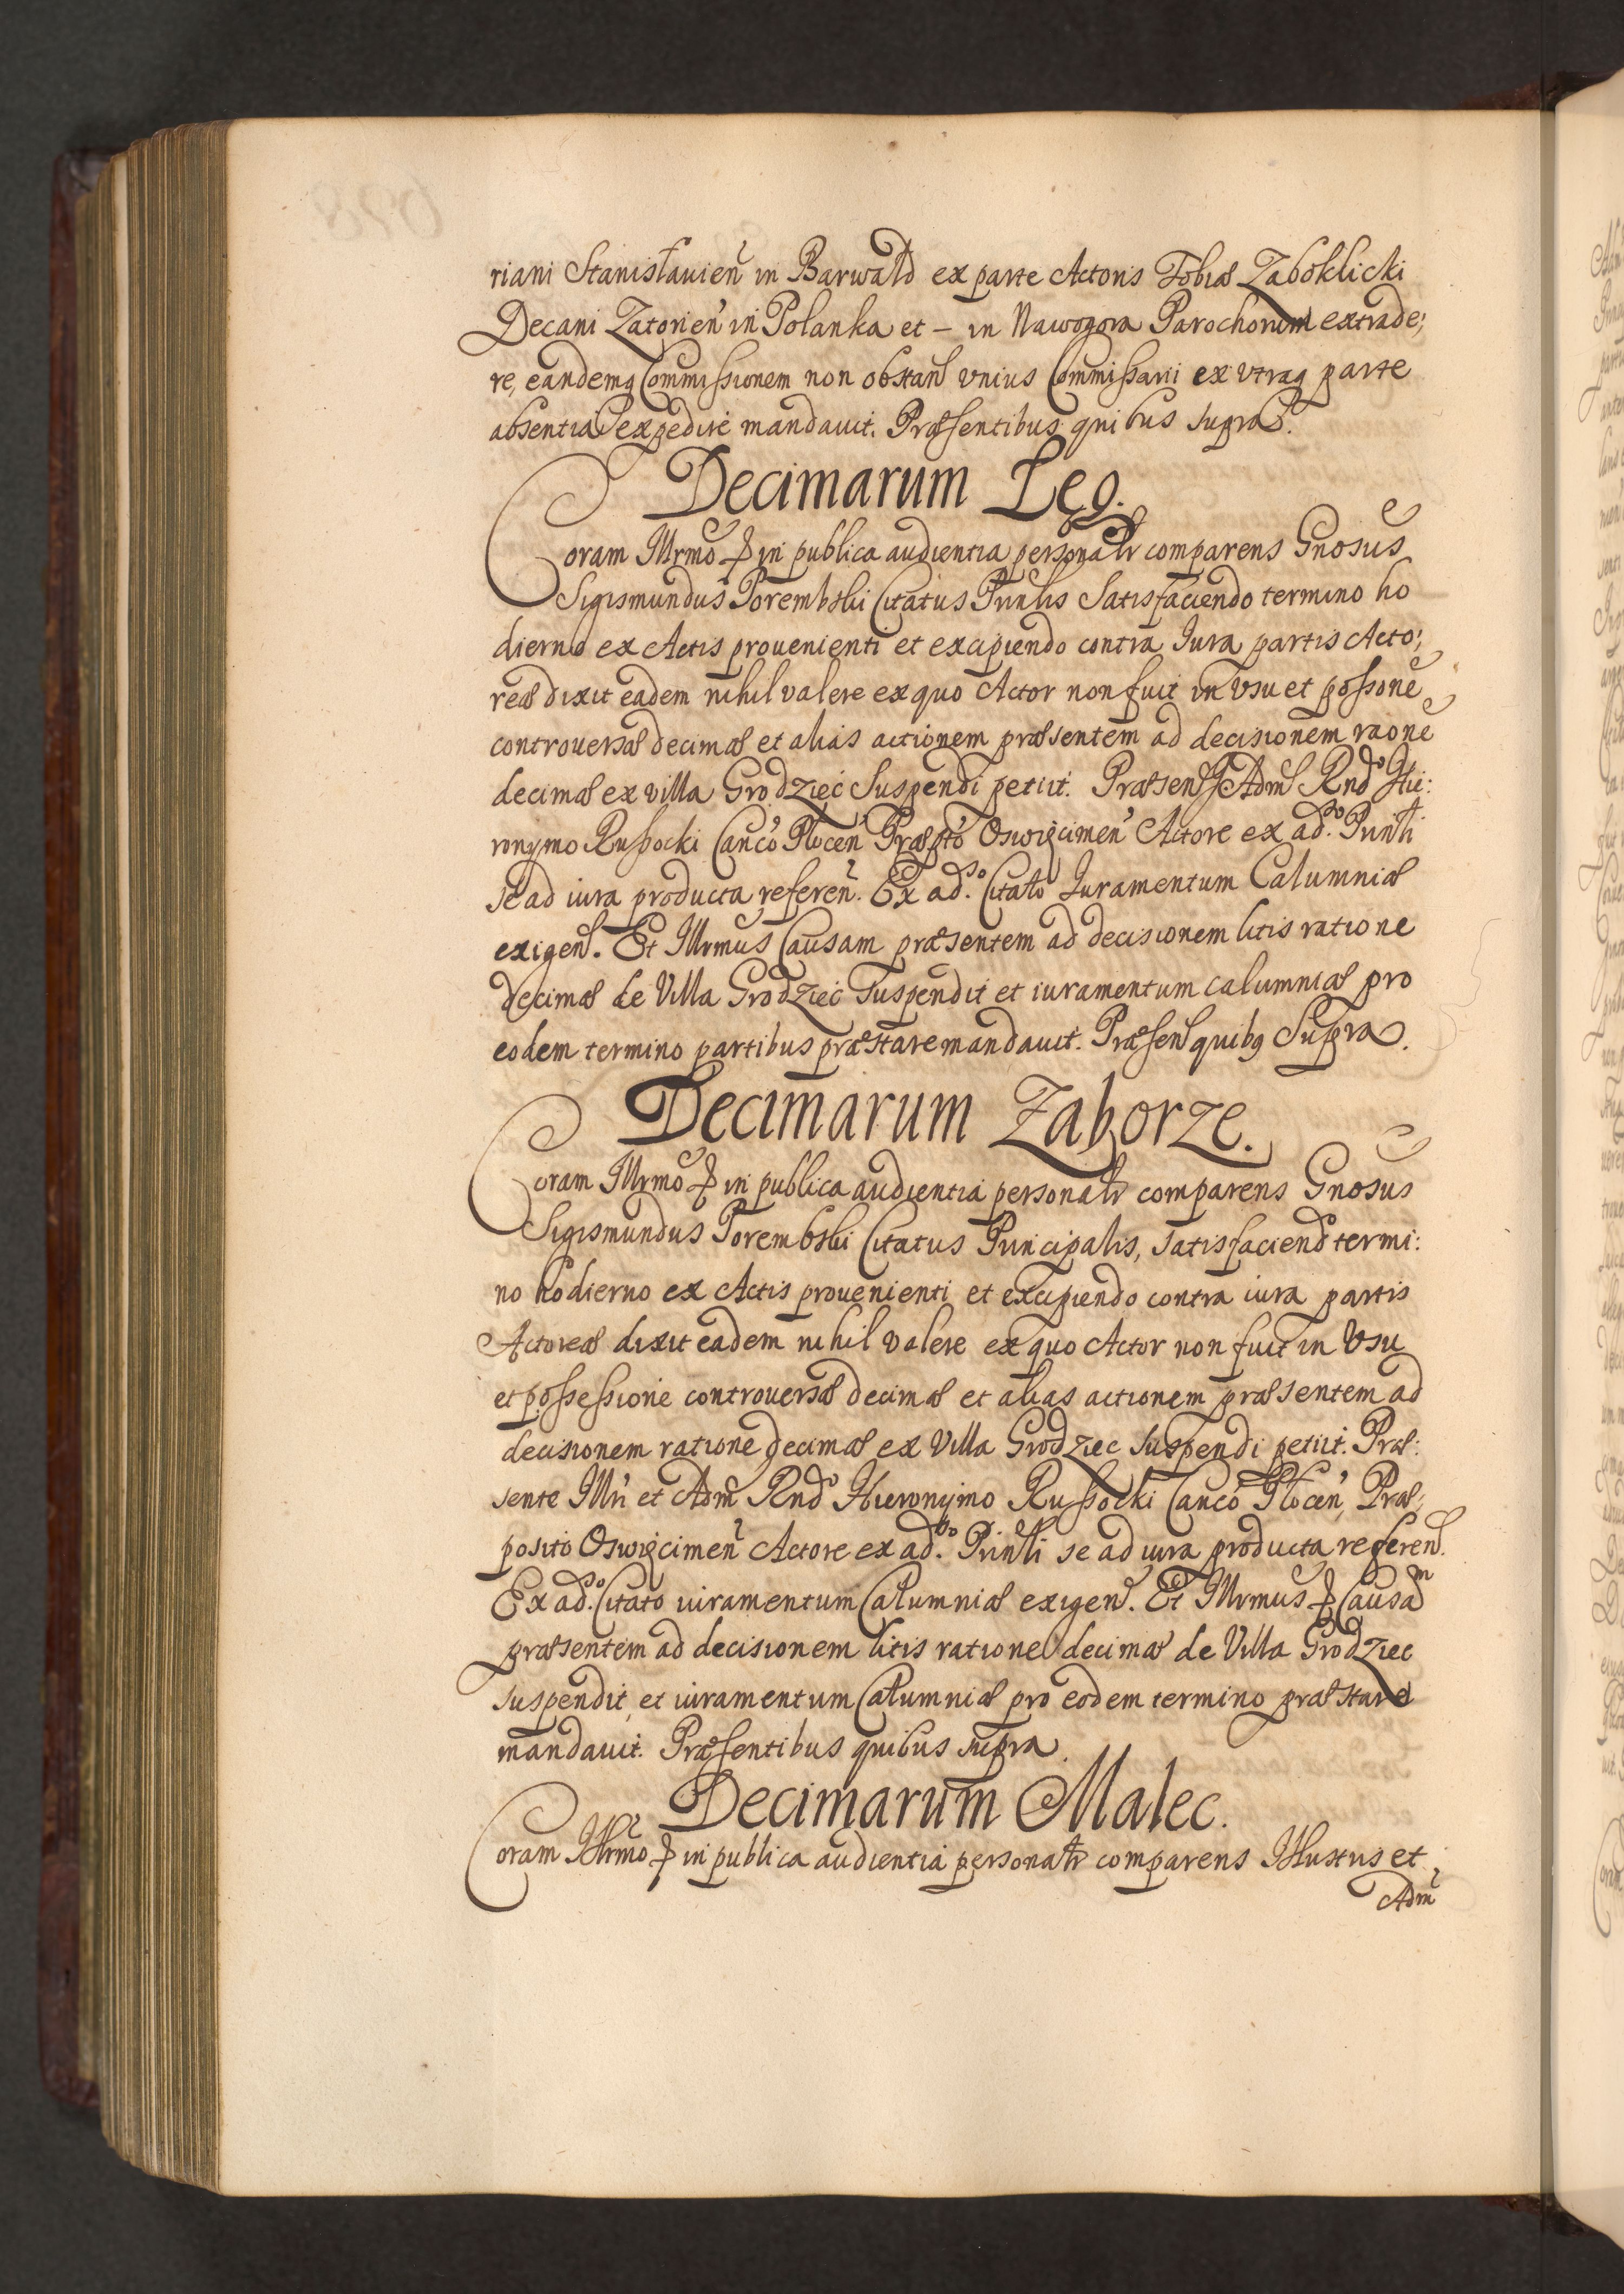 riani Stanisłauien̄ in Barwałd ex parte Actoris Tobiæ Zaboklicki
Decani Zatorien̄ in Polanka et – in Nawogora Parochorum extrade;
re, eandemq Commissionem non obstan̄ vnius Commissarii ex vtraq parte
absentia expedire mandauit. Præsentibus quibus supra.
Decimarum Łęg.
Coram Illrmo & in publica audientia personalr comparens Gnosus
Sigismundus Porembski Citatus Prinlis Satisfaciendo termino ho
dierno ex Actis prouenienti et excipiendo contra Iura partis Acto;
reæ dixit eadem nihil valere ex quo Actor non fuit in vsu et possone
controuersæ decimæ et alias actionem præsentem ad decisionem raone
decimæ ex villa Grodziec Suspendi petiit. Præsen Adm Rndo Hie:
ronymo Russocki Canco Płocen Præpto Oswięcimen Actore ex ado. Prinli
se ad iura producta referen. Ex ado. Citato Iuramentum Calumniæ
exigen. Et Illrmus Causam præsentem ad decisionem litis ratione
decimæ de Villa Grodziec Suspendit et iuramentum calumniæ pro
eodem termino partibus præstare mandauit. Præsen quibq Supra.
Decimarum Zaborze.
Coram Illrmo & in publica audientia personalr comparens Gnosus
Sigismundus Porembski Citatus Principalis, satisfaciend termi:
no hodierno ex Actis prouenienti et excipiendo contra iura partis
Actoreæ dixit eadem nihil valere ex quo Actor non fuit in Vsu
et possessione controuersæ decimæ et alias actionem præsentem ad
decisionem ratione decimæ ex Villa Grodziec suspendi petiit. Præ:
sente Illri et Adm Rndo Hieronymo Russocki Canco Płocen, Præ,
posito Oswięcimen Actore ex ado. Prinli se ad iura producta referen.
Ex ado. Citato iuramentum Calumniæ exigen. Et Illrmus & Causam
præsentem ad decisionem litis ratione decimæ de Villa Grodziec
suspendit, et iuramentum Calumniæ pro eodem termino præstare
mandauit. Præsentibus quibus supra.
Decimarum Malec.
Coram Illrmo & in publica audientia personalr comparens Illustus et
Adm